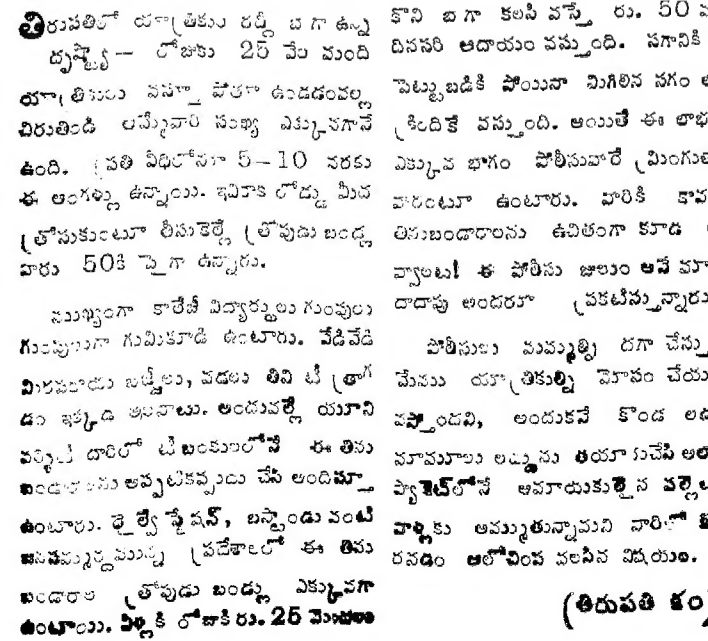 తిరుపతిలో యాత్రికుల రద్దీ బాగా ఉన్న
దృష్ట్యా — రోజుకు 25 వేల మంది
యాత్రికులు వస్తూ పోతూ ఉండడంవల్ల
చిరుతిండి అమ్మేవారి సంఖ్య ఎక్కువగానే
ఉంది. ప్రతి వీధిలోనూ 5—10 వరకు
ఈ అంగళ్లు ఉన్నాయి. ఇవికాక రోడ్డు మీద
త్రోసుకుంటూ తీసుకెళ్లే త్రోపుడు బండ్ల
వారు 50కి పైగా ఉన్నారు.
ముఖ్యంగా కాలేజీ విద్యార్థులు గుంపులు
గుంపులుగా గుమికూడి ఉంటారు. వేడివేడి
మిరపకాయ బజ్జీలు, వడలు తిని టీ త్రాగ
డం ఇక్కడ అలవాటు. అందువల్లే యూని
వర్శిటీ దారిలో టీ బంకులలోనే ఈ తిను
బండారాలను అప్పటికప్పుడు చేసి అందిస్తూ
ఉంటారు. రైల్వే స్టేషన్, బస్టాండు వంటి
జనసమ్మర్దమున్న ప్రదేశాలలో ఈ తిను
బండారాల త్రోపుడు బండ్లు ఎక్కువగా
ఉంటాయి. వీళ్లకి రోజుకి రు. 25 మొదలు
కొని బాగా కలసి వస్తే రు. 50
దినసరి ఆదాయం వస్తుంది. సగానికి
పెట్టుబడికి పోయినా మిగిలిన సగం
క్రిందికే వస్తుంది. అయితే ఈ లాభ
ఎక్కువ భాగం పోలీసువారే మ్రింగుతు
వారంటూ ఉంటారు. వారికి కావ
తినుబండారాలను ఉచితంగా కూడ
వ్వాలట! ఈ పోలీసు జులుం అనే మా
దాదాపు అందరూ ప్రకటిస్తున్నారు
పోలీసులు మమ్మల్ని దగా చేస్తు
మేము యాత్రికుల్ని మోసం చేయ
వస్తోందని, అందుకనే కొండ లడ
మామూలు లడ్డును తయారుచేసి అలా
ప్యాకెట్‌లోనే అమాయకులైన పల్లెట
వాళ్లకు అమ్ముతున్నామని వారిలో
రవడం ఆలోచింప వలసిన విషయం.
(తిరుపతి కం)